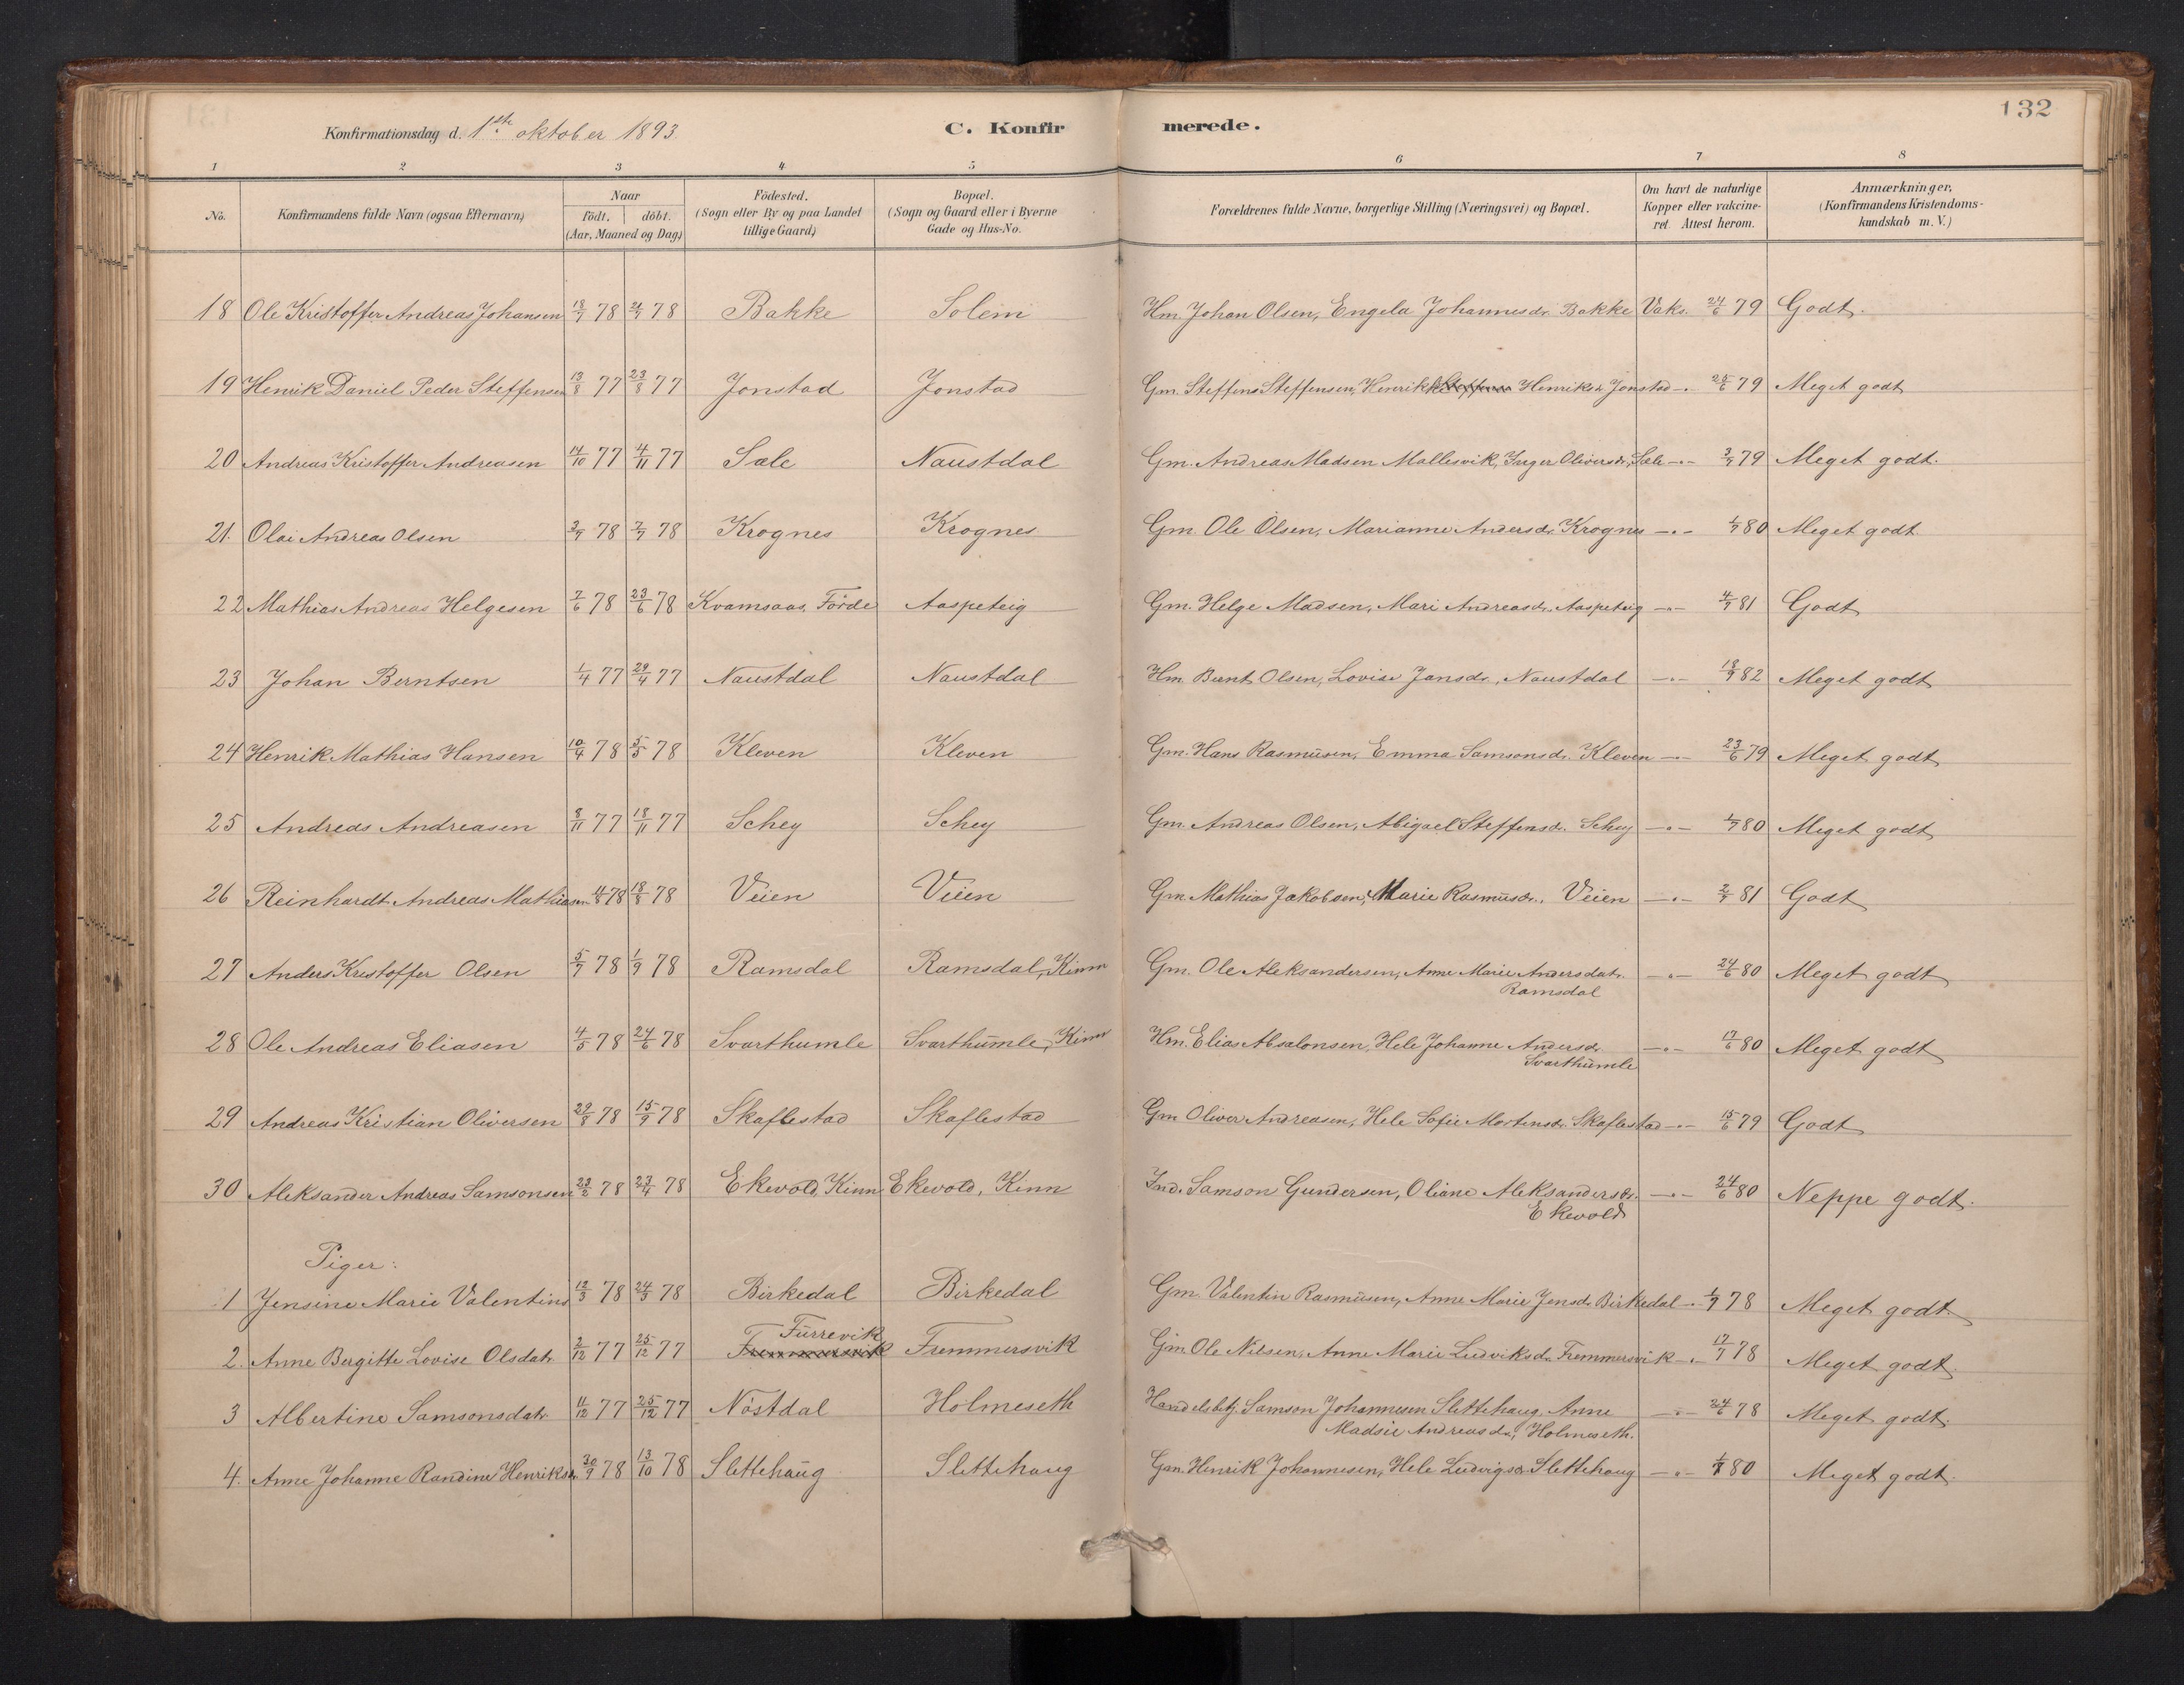 132
Konfirmationsdag d. 1ste oktober 1893.
C. Konfirmerede.
1 2 3 4 5 6 7 8
No. Konfirmandens fulde Navn (ogsaa Efternavn) Naar födt. döbt. (Aar, Maaned og Dag) Födested. (Sogn eller By og paa Landet tillige Gaard) Bopæl. (Sogn og Gaard eller i Byerne Gade og Hus-No. Forældrenes fulde Navne, borgerlige Stilling (Næringsvei) og Bopæl. Om havt de naturlige Kopper eller vakcineret. Attest herom. Anmærkninger, (Konfirmandens Kristendomskundskab m. V.)
18 Ole Kristoffer Andreas Johansen 18/7 78 21/7 78 Bakke Solem Hm. Johan Olsen, Engela Johannesdr. Bakke Vaks. 24/6 79 Godt.
19 Henrik Daniel Peder Steffensen 13/8 77 23/8 77 Jonstad Jonstad Gm. Steffens Steffensen, Henrikke Henriksdr. Jonstad -"- 25/6 79 Meget godt
20 Andreas Kristoffer Andreasen 14/10 77 4/11 77 Sæle Naustdal Gm. Andreas Madsen Mallesvik, Inger Oliversdr, Sæle -"- 3/9 79 Meget godt.
21. Olai Andreas Olsen 78 7/7 78 Krognes Krognes Gm. Ole Olsen, Marianne Andersdr. Krognes -"- 1/7 80 Meget godt.
22 Mathias Andreas Helgesen 7/6 78 23/6 78 Kvamsaas, Förde Aaspeteig Gm. Helge Madsen, Mari Andreasdr. Aaspeteig -"- 4/7 81 Godt
23 Johan Berntsen 1/4 77 29/4 77 Naustdal Naustdal Hm. Bernt Olsen, Lovise Jansdr., Naustdal -"- 18/9 82 Meget godt
24 Henrik Mathias Hansen 10/4 78 5/5 78 Kleven Kleven Gm. Hans Rasmusen, Emma Samsonsdr. Kleven -"- 23/6 79 Meget godt
25 Andreas Andreasen 8/11 77 18/11 77 Schey Schey Gm. Andreas Olsen, Abigael Steffensdr. Schey -"- 1/7 80 Meget godt
26 Reinhardt Andreas Mathiasen 4/8 78 18/8 78 Veien Veien Gm. Mathias Jakobsen, Marie Rasmusdr., Veien -"- 2/7 81 Godt
27 Anders Kristoffer Olsen 5/7 78 1/9 78 Ramsdal Ramsdal, Kinn Gm. Ole Aleksandersen, Anne Marie Andersdatr. Ramsdal -"- 24/6 80 Meget godt
28 Ole Andreas Eliasen 4/5 78 24/6 78 Svarthumle Svarthumle, Kinn Hm. Elias Absalonsen, Hele Johanne Andersdr. Svarthumle -"- 17/6 80 Meget godt
29 Andreas Kristian Oliversen 29/8 78 15/9 78 Skaflestad Skaflestad Gm Oliver Andreasen, Hele Sofie Mortensdr. Skaflestad -"- 15/6 79 Godt
30 Aleksander Andreas Samsonsen 23/2 78 23/4 78 Ekevold, Kinn Ekevold, Kinn Ind. Samson Gundersen, Oliane Aleksandersdr. Ekevold -"- 24/6 80 Neppe godt.
Piger:
1 Jensine Marie Valentins 12/3 78 24/3 78 Birkedal Birkedal Gm. Valentin Rasmusen, Anne Marie Jensdr. Birkedal -"- 1/9 78 Meget godt.
2. Anne Bergitte Lovise Olsdatr. 2/12 77 25/12 77 Furrevik Fremmersvik Fremmersvik Gm. Ole Nilsen, Anne Marie Ludviksdr. Fremmersvik -"- 17/7 78 Meget godt.
3 Albertine Samsonsdatr. 11/12 77 25/12 77 Nöstdal Holmeseth Handelsbetj. Samson Johannesen Slettehaug, Anne Madsie Andreasdr., Holmeseth. -"- 24/6 78 Meget godt.
4. Anne Johanne Randine Henriksdr. 30/9 78 13/10 78 Slettehaug Slettehaug Gm. Henrik Johannesen, Hele Ludvigsdr. Slettehaug -"- 1/7 80 Meget godt.